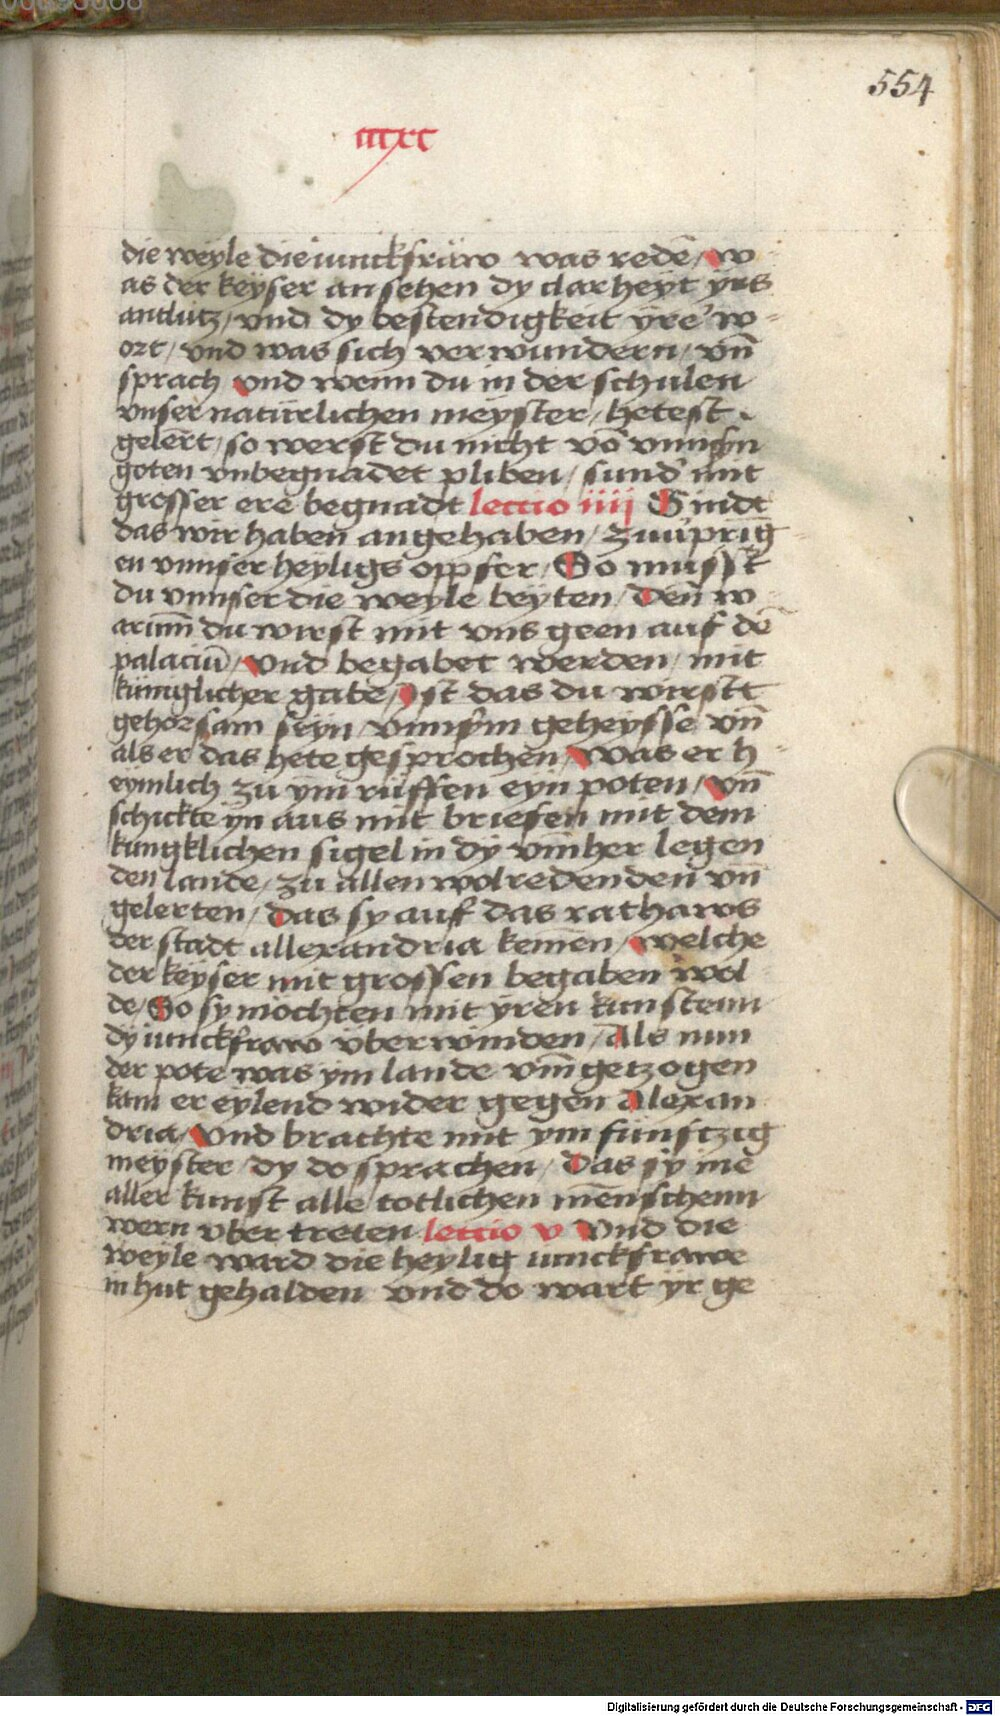 554
cccxc
die weyle die iunckfräw was redē / w-
as der keyser an sehen dy clarheyt yrs
antlutz / vnd dy bestendigkeit yre' w-
ort / vnd was sich verwundern / vn̄
sprach vnd wenn du in der schulen
vnser natürlichen meyster / hetest
gelert / so werst du nicht vō vnnsn̄
goten vnbegnadet pliben / sund' mit
grosser ere begnadt lectio iiij Sindt
das wir haben angehaben / zuuprīg-
en vnnser heyligs opfer / So musst
du vnnser die weyle beyten / Den w-
arūm du wirst mit vns geen auf dē
palaciū / vnd begabet werden / mit
küniglicher gabe / Ist das du wirstt
gehorsam seyn / vnnsm̄ geheysse vn̄
als er das hete gesprochen / Was er h-
eymlich zu ym rüffen eyn poten / vn̄
schickte yn aus mit briefen mit dem
kungklichen sigel in dy vmher legen
den lande / zu allen wolredenden vn̄
gelerten / das sy auf das rathaws
der stadt allexandria kemen / welche
der keyser mit grossen begaben wol
de / So sy möchten mit yren kunstenn
dy iunckfraw vber winden / Als nun
der pote was ym lande vm̄getzogen
kam er eylend wider gegen Alexan
dria / Vnd brachte mit ym funftzig
meyster / dy do sprachen / Das sy ine
aller kunst alle totlichen mēnschenn
wern vber treten lectio v Vnd die
weyle ward die heylig iunckfrawe
in hut gehalden vnd do wart yr ge
Digitalisierung gefördert durch die Deutsche Forschungsgemeinschaft - DFG